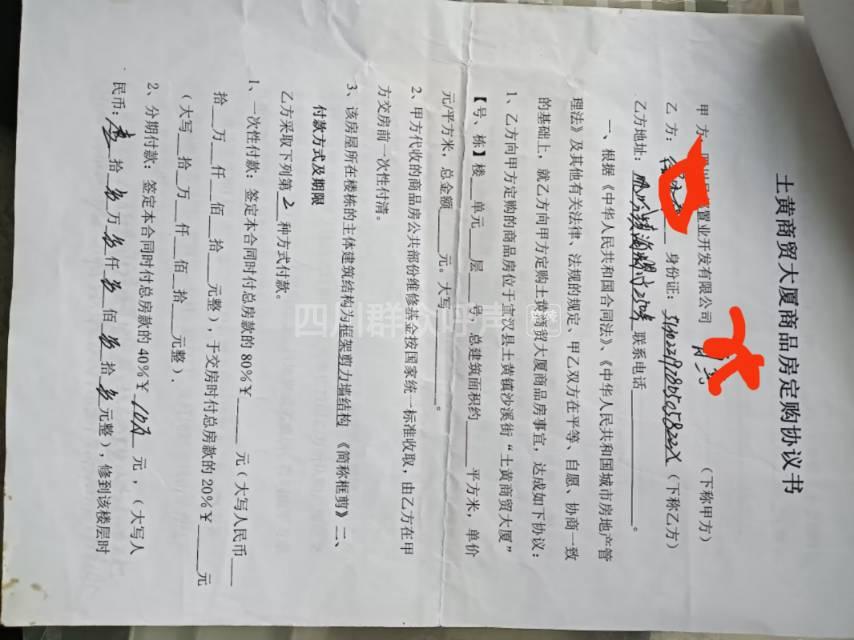 土黄商贸大厦商品房定购协议书
甲 方: 置业开发有限公司 (下称甲方)
乙 方: 身份证: (下称乙方)
乙方地址: 联系电话 。
一、根据《中华人民共和国合同法》、《中华人民共和国城市房地产管
理法》及其他有关法律、法规的规定、甲乙双方在平等、自愿、协商一致
的基础上,就乙方向甲方定购土黄商贸大厦商品房事宜,达成如下协议:
1、乙方向甲方定购的商品房位于宣汉县土黄镇沙溪街“土黄商贸大厦”
【号、栋】楼___单元___层___号,总建筑面积约____平方米,单价
元/平方米,总金额____元。大写________。
2、甲方代收的商品房公共部份维修基金按国家统一标准收取,由乙方在甲
方交房前一次性付清。
3、该房屋所在楼栋的主体建筑结构为框架剪力墙结构《简称框剪》二、
付款方式及期限
乙方采取下列第 2 种方式付款。
1、一次性付款:签定本合同时付总房款的80%¥____元(大写人民币___
拾___万___仟___佰___拾___元整),于交房时付总房款的20%¥____元
(大写___拾___万___仟___佰___拾___元整).
2、分期付款:签定本合同时付总房款的40%¥ 元,(大写人
民币: 拾 万 仟 佰 拾 元整),修到该楼层时
四川群众呼声